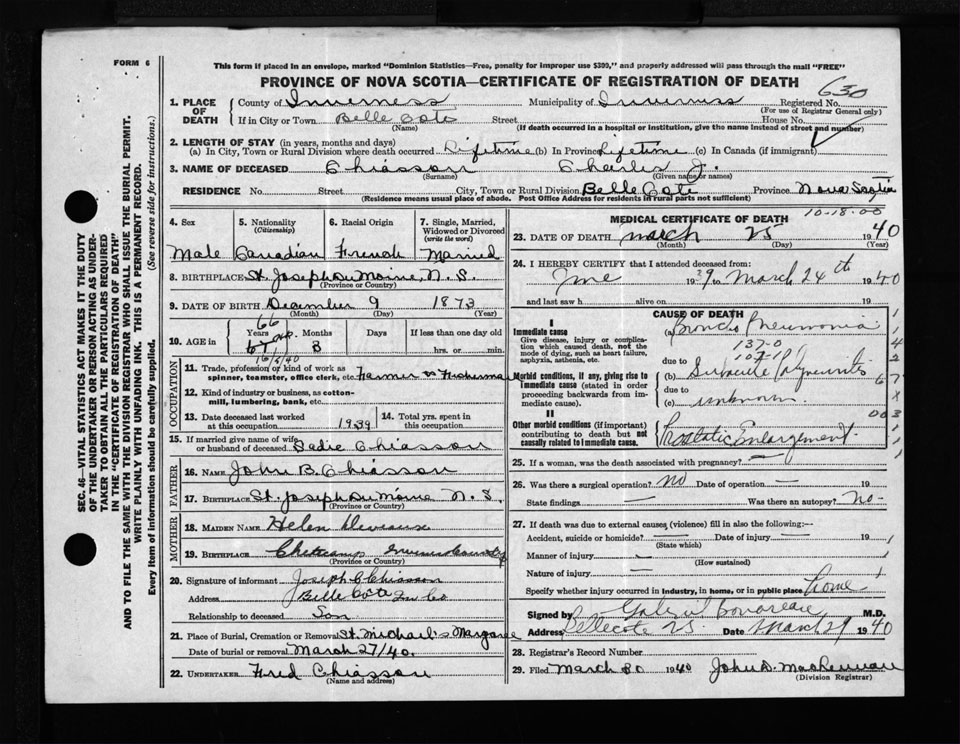 FORM 6
This form if placed in an envelope, marked "Dominion Statistics—Free, penalty for improper use $300," and properly addressed will pass through the mail "FREE"
PROVINCE OF NOVA SCOTIA—CERTIFICATE OF REGISTRATION OF DEATH
630
1. PLACE OF DEATH County of Inverness Municipality of Inverness Registered No.
(For use of Registrar General only)
If in City or Town Belle Cote Street House No.
(Name) (If death occurred in a hospital or institution, give the name instead of street and number)
2. LENGTH OF STAY (in years, months and days)
(a) In City, Town or Rural Division where death occurred Lifetime (b) In Province Lifetime (c) In Canada (if immigrant)
3. NAME OF DECEASED Chiasson Charles J.
(Surname) (Given name or names)
RESIDENCE No. Street City, Town or Rural Division Belle Cote Province Nova Scotia
(Residence means usual place of abode. Post Office Address for residents in rural parts not sufficient)
4. Sex 5. Nationality (Citizenship) 6. Racial Origin 7. Single, Married, Widowed or Divorced (write the word)
Male Canadian French Married
8. BIRTHPLACE St. Joseph du Moine, N. S.
(Province or Country)
9. DATE OF BIRTH December 9 1873
(Month) (Day) (Year)
10. AGE in Years Months Days If less than one day old
66
67 3 hrs. or min.
16/5/40
OCCUPATION
11. Trade, profession or kind of work as spinner, teamster, office clerk, etc. Farmer Fisherman
12. Kind of industry or business, as cotton-mill, lumbering, bank, etc.
13. Date deceased last worked at this occupation 1939 14. Total yrs. spent in this occupation
15. If married give name of wife or husband of deceased Sadie Chiasson
FATHER
16. NAME John B. Chiasson
17. BIRTHPLACE St. Joseph du Moine N. S.
(Province or Country)
MOTHER
18. MAIDEN NAME Helen
19. BIRTHPLACE Cheticamp Inverness County
(Province or Country)
20. Signature of informant Joseph C Chiasson
Address Belle Cote In Co
Relationship to deceased Son
21. Place of Burial, Cremation or Removal St. Michael's Margaree
Date of burial or removal March 27/40.
22. UNDERTAKER Fred Chiasson
(Name and address)
10-18-00
MEDICAL CERTIFICATE OF DEATH
23. DATE OF DEATH March 25 1940
(Month) (Day) (Year)
24. I HEREBY CERTIFY that I attended deceased from:
June 1939 to March 24th 1940
and last saw h alive on 19
CAUSE OF DEATH
I
Immediate cause
Give disease, injury or complication which caused death, not the mode of dying, such as heart failure, asphyxia, asthenia, etc.
(a) Broncho Pneumonia
137-0
107-1
due to
Morbid conditions, if any, giving rise to immediate cause (stated in order proceeding backwards from immediate cause).
(b)
due to
(c) unknown
II
Other morbid conditions (if important) contributing to death but not causally related to immediate cause.
Prostatic Enlargement.
25. If a woman, was the death associated with pregnancy? —
26. Was there a surgical operation? No Date of operation — 19
State findings — Was there an autopsy? No -
27. If death was due to external causes (violence) fill in also the following:—
Accident, suicide or homicide? — Date of injury — 19
(State which)
Manner of injury —
(How sustained)
Nature of injury —
Specify whether injury occurred in industry, in home, or in public place home
Signed by M.D.
Address Bellecote NS. Date March 29 1940
28. Registrar's Record Number
29. Filed March 30 1940 John D. MacLennan
(Division Registrar)
SEC. 46—VITAL STATISTICS ACT MAKES IT THE DUTY
OF THE UNDERTAKER OR PERSON ACTING AS UNDER-
TAKER TO OBTAIN ALL THE PARTICULARS REQUIRED
IN THE "CERTIFICATE OF REGISTRATION OF DEATH"
AND TO FILE THE SAME WITH THE DIVISION REGISTRAR WHO SHALL ISSUE THE BURIAL PERMIT.
WRITE PLAINLY WITH UNFADING INK. THIS IS A PERMANENT RECORD.
Every item of information should be carefully supplied. (See reverse side for instructions.)